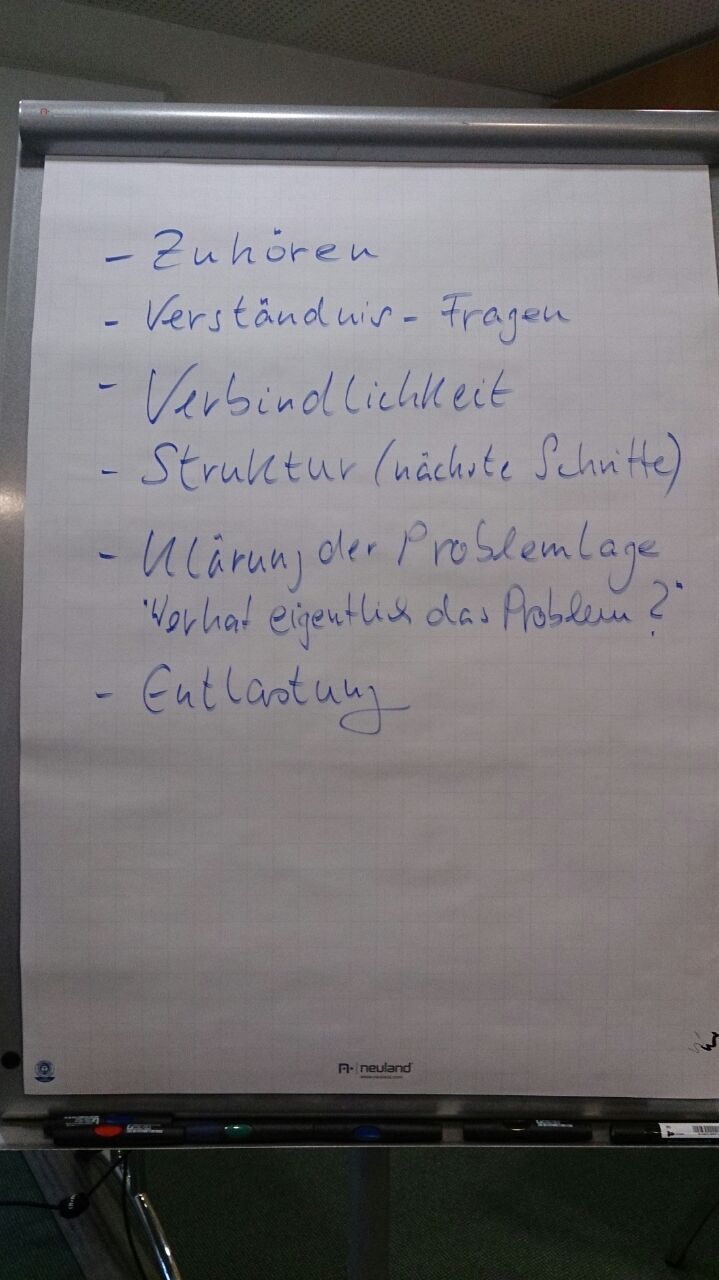 - Zuhören
- Verständnis - Fragen
- Verbindlichkeit
- Struktur (nächste Schritte)
- Klärung der Problemlage
"Wer hat eigentlich das Problem?"
- Entlastung
neuland